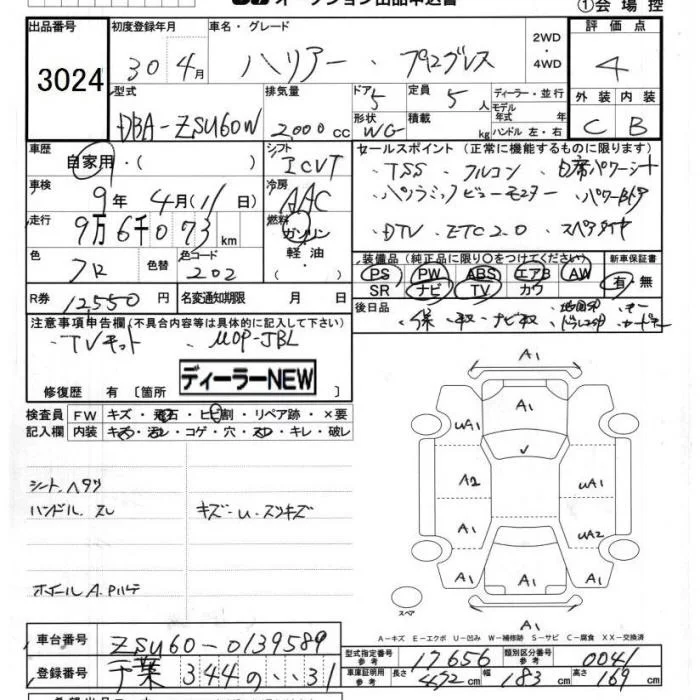 オークション出品申込書
①会場控
出品番号 3024
初度登録年月 30年4月
車名・グレード ハリアー・プログレス
2WD・4WD
評価点 4
型式 DBA-ZSU60W
排気量 2000cc
ドア 5 定員 5人
形状 WG 積載 kg
ディーラー・並行
モデル年式 年式
ハンドル 左・右
外装 C 内装 B
車歴 自家用・( )
シフト ICVT
セールスポイント (正常に機能するものに限ります)
・TSS ・フルコン ・D席パワーシート
車検 9年4月(11日)
冷房 AAC
・パノラミックビューモニター ・パワーBドア
走行 9万6千073km
燃料 ガソリン・軽油・( )
・DTV ・ETC2.0 ・スペアタイヤ
色 クロ 色替 色コード 202
装備品 (純正品に限り○をつけてください) 新車保証書
PS PW ABS エアB AW
SR ナビ TV カワ
有・無
R券 12550円 名変通知期限 月 日
後日品 ・保・取・ナビ取
注意事項申告欄(不具合内容等は具体的に記入して下さい)
・TVキット ・MOP-JBL
修復歴 有 [箇所 ディーラーNEW ]
検査員記入欄 FW キズ・飛石・ヒビ割・リペア跡・×要
内装 キズ・汚レ・コゲ・穴・スレ・キレ・破レ
シート.ヘタリ
ハンドル.スレ キズ・U・スリキズ
ホイールA.P
A1
A1
UA1 A1
A2 UA1
A1 UA2
A1 A1 A1
A1
スペア
A-キズ E-エクボ U-凹み W-補修跡 S-サビ C-腐食 XX-交換済
車台番号 ZSU60-0139589
登録番号 千葉 344 の ・・31
型式指定番号 参考 17656 類別区分番号 参考 0041
車庫証明用 参考 長さ 472cm 幅 183cm 高さ 169cm